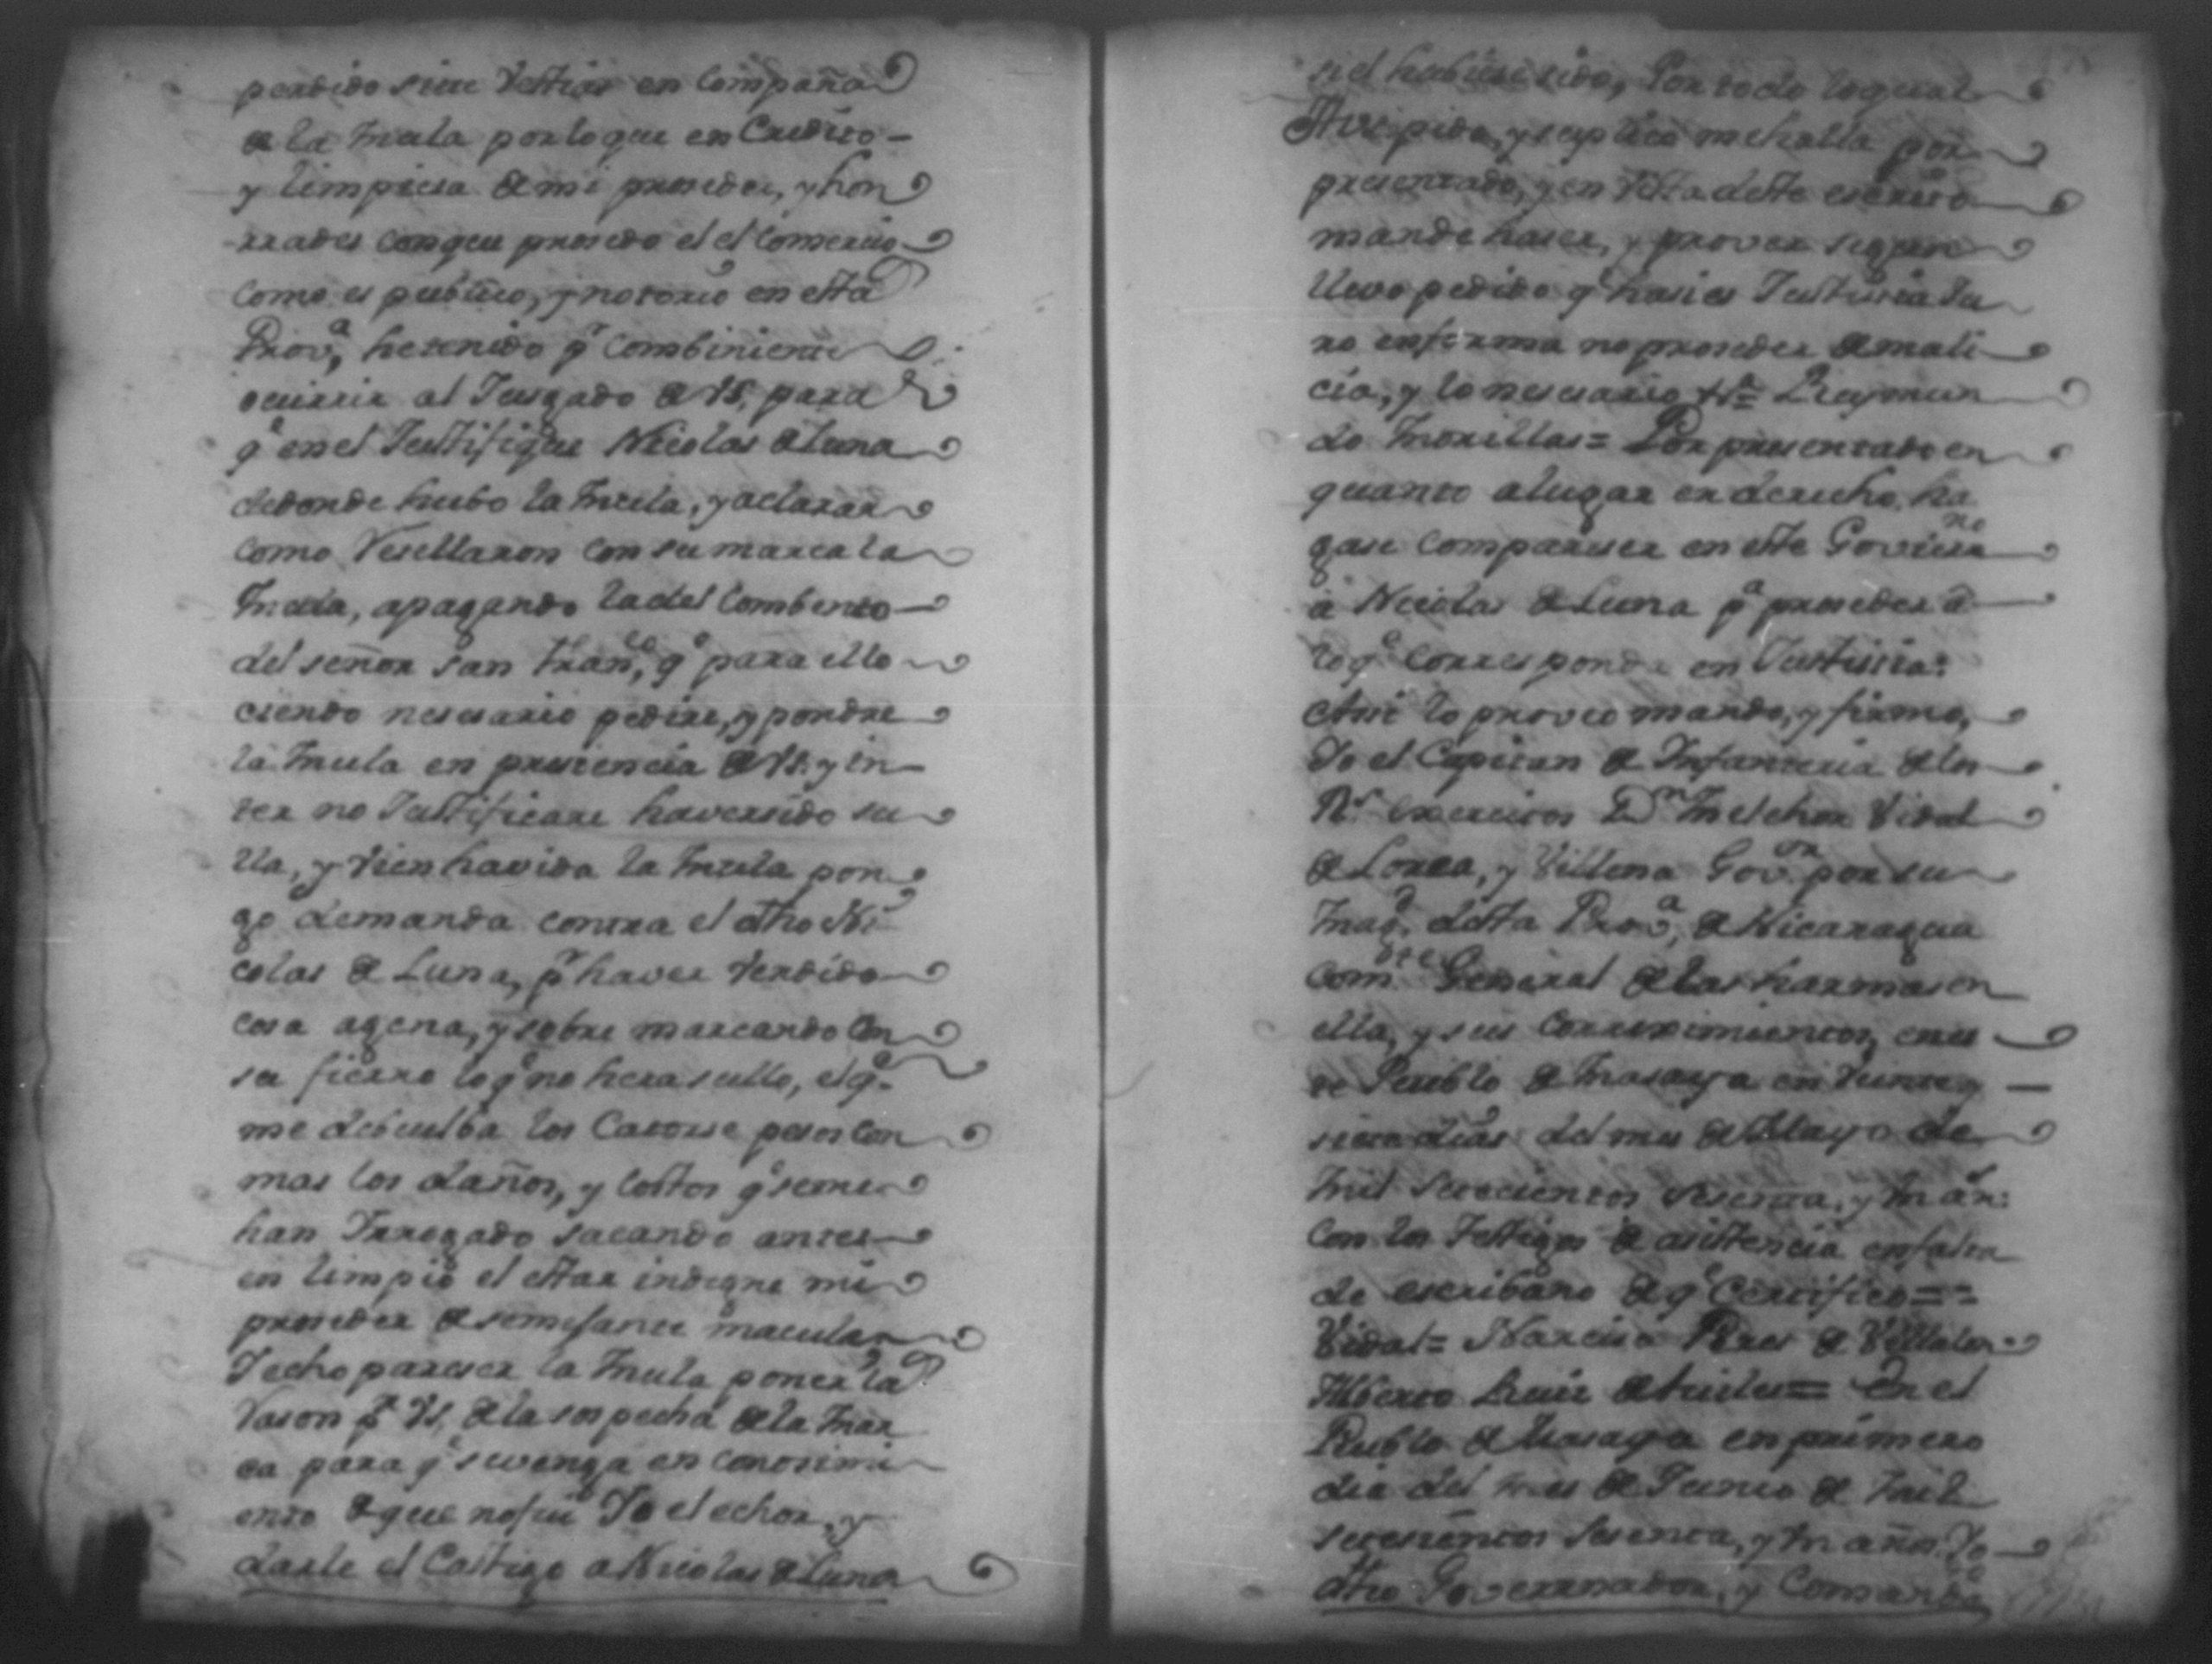 perdido siete Vestias en Compaña
de la mula por lo que en Credito
y limpiesa de mi proseder, y hon
rrades con que prosedo el el Comercio
como es publico, y notorio en esta
Prov.ª, he tenido pr Combiniente
ocurrir al Jusgado de VS, para
qe en el Justifique Nicolas de Luna
de donde hubo la mula, y aclarar
como Resellaron con su marca la
mula, apagando la del Combento
del señor san Franco, qe para ello
ciendo nesesario pedire, y pondre
la mula en presiencia de VS. y in
ter no Justificare haver sido su
lla, y vien havida la mula pon
go demanda contra el dho Ni
colas de Luna, pr haver Vendido
cosa agena, y sobre marcando Con
su fierro lo qe no hera sullo, el qe
me debuelba los Catorse pesos con
mas los daños, y Costos qe se me
han Yrrogado sacando antes
en limpio el estar indegne mi
proseder de semejante macula
Y echo pareser la mula poner la
Rason pr VS, de la sospecha de la mar
ca para qe se venga en conosimi
ento de que no fui Yo el echor, y
darle el Castigo a Nicolas de Luna
si el hubiere sido, Por todo lo qual
A VS pido, y suplico me halla por
presentado, y en Vista deste escrito
mande haser, y prover segun
llevo pedido qe hasi es Justisia Ju
ro en forma no proseder de mali
cia, y lo nesesario &ª = Raymun
do Morillas = Por presentado en
quanto a lugar en derecho. ha
gase Compareser en este Govierno
a Nicolas de Luna pª proseder a
lo qe Corresponda en Justisia:
Asi lo proveo mando, y firmo,
Yo el Capitan de Infanteria de los
Rs exercitos Dn Melchor Vidal
de Lorca, y Villena Govor por su
Magd. desta Provª, de Nicaragua
Comte General de las harmas en
ella, y sus Correximientos, en es
te Pueblo de Masaya en Veinte y
siete dias del mes de Mayo de
mil setecientos sesenta, y Vn añs:
Con los Testigos de asistencia en falta
de escribano de qe Certifico = =
Vidal = Narciso Peres de Villalon
Alberto Luis de = En el
Pueblo de Masaya en primero
dia del mes de Junio de mil
setesientos sesenta, y Vn años. Yo
dho Governador, y Comandte